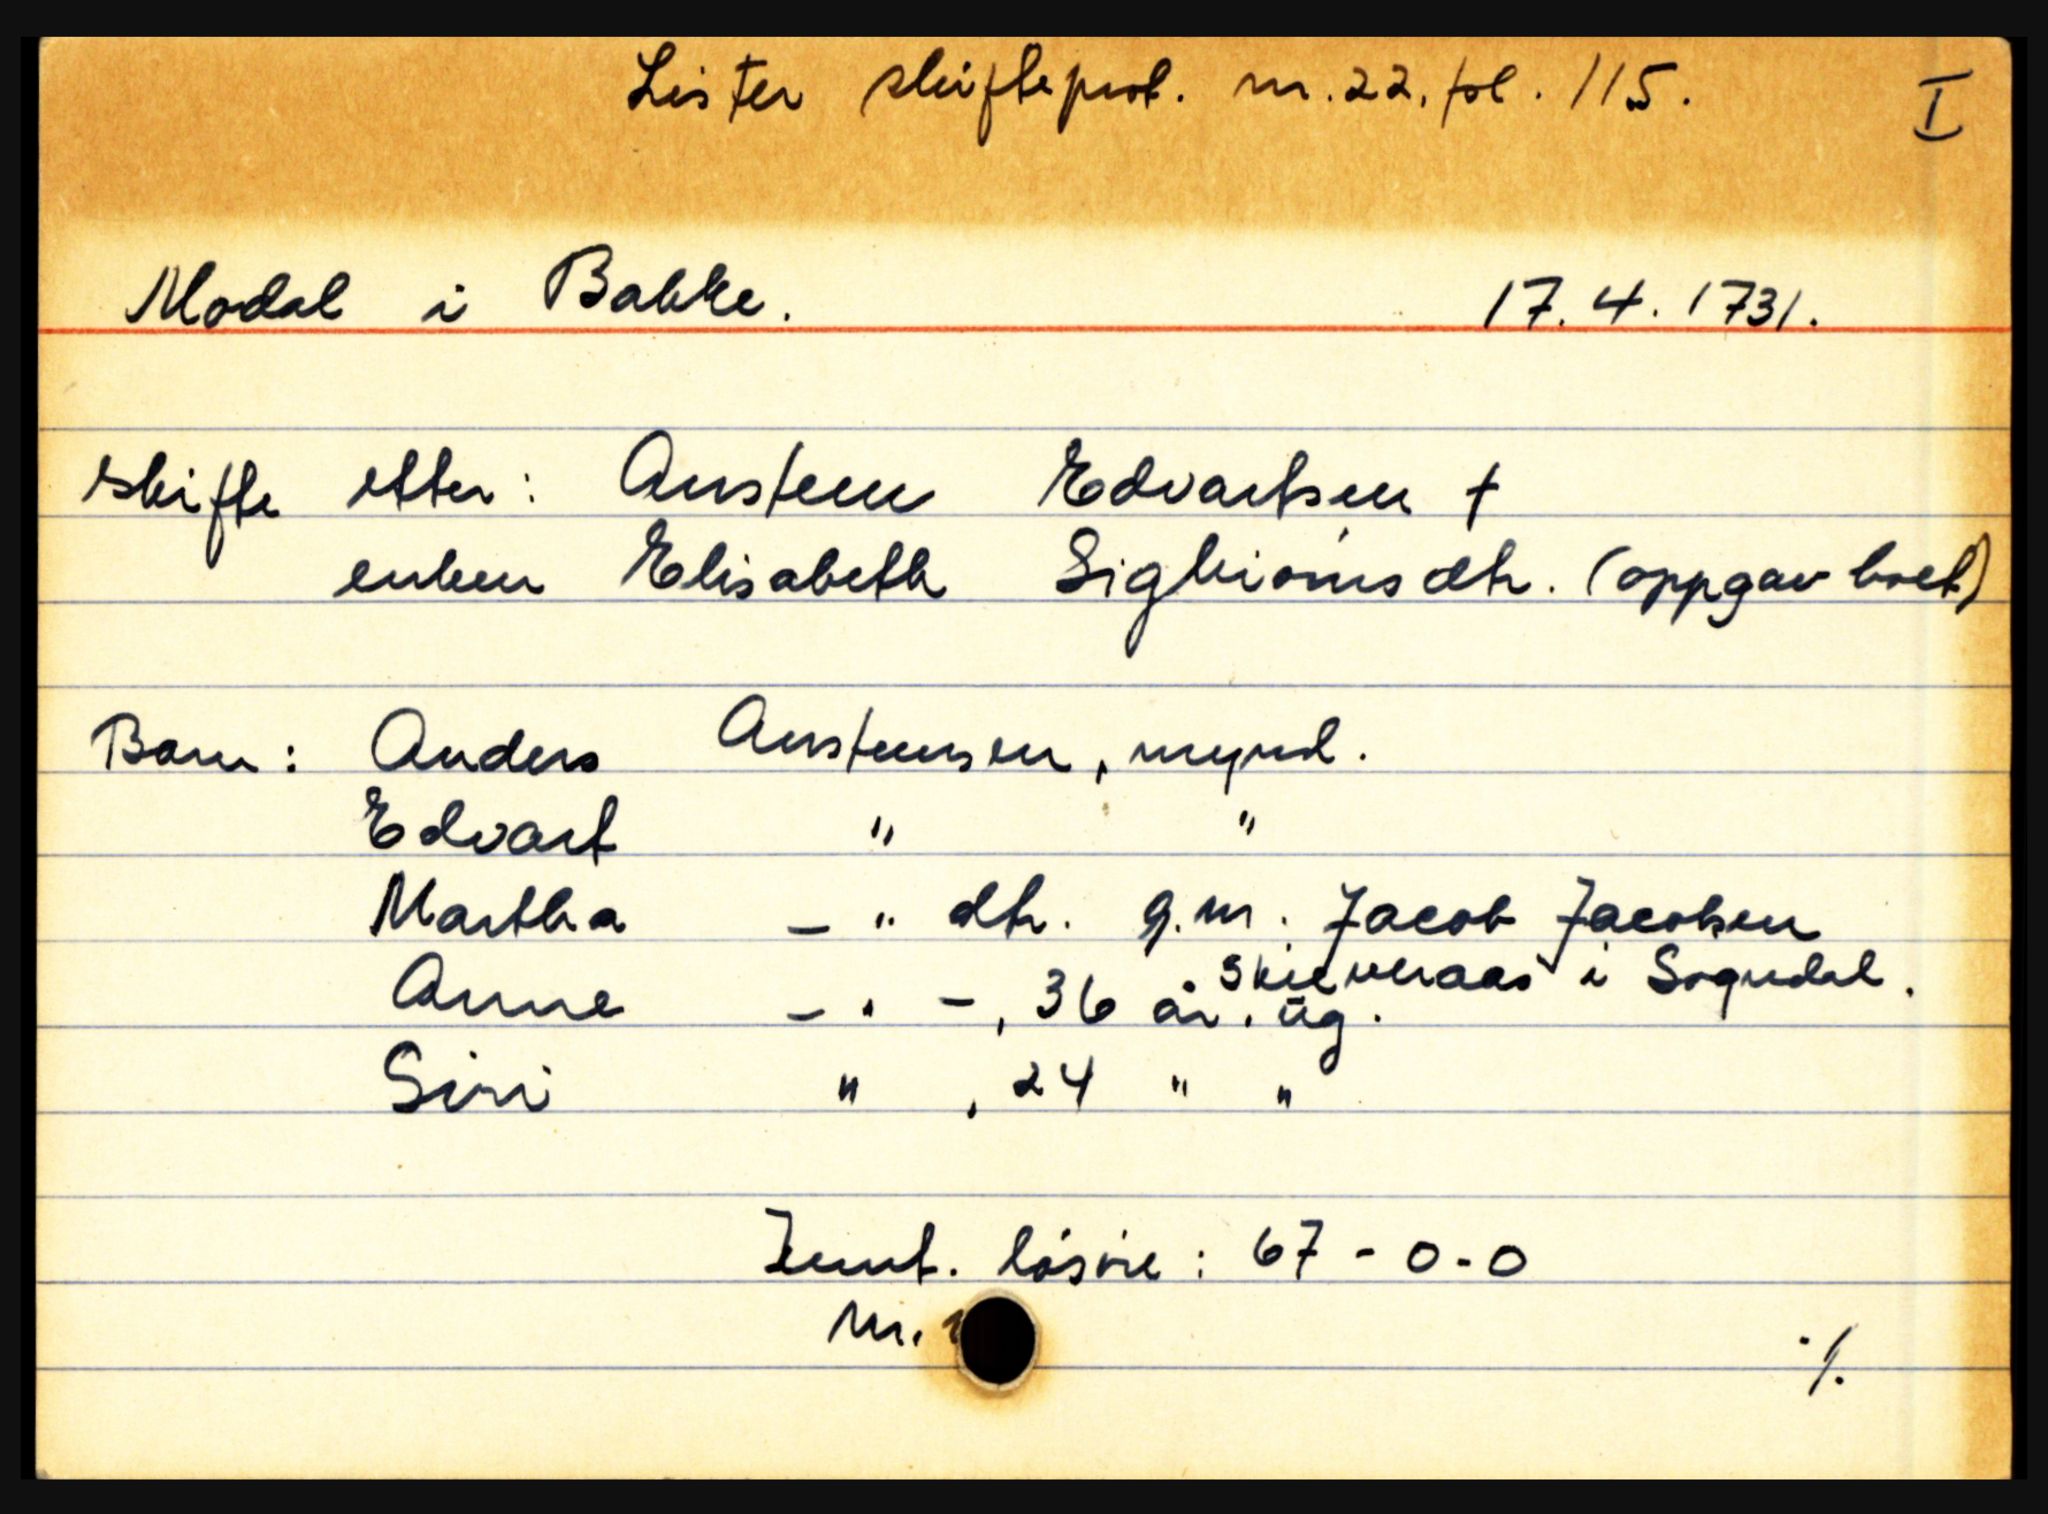 Lister skifteprot. nr. 22, fol. 115. I
Modal i Bakke. 17. 4. 1731.
skifte etter: Austen Edvartsen †
enken Elisabeth Sigbiørnsdtr. (oppgav boet)
Barn: Anders Austensen, mynd.
Edvart " "
Martha - " dtr. g.m. Jacob Jacobsen
i Sogndal.
Anne - " -, 36 år. ug.
Siri " , 24 " "
løsøre: 67 - 0 - 0
Nr.
./.